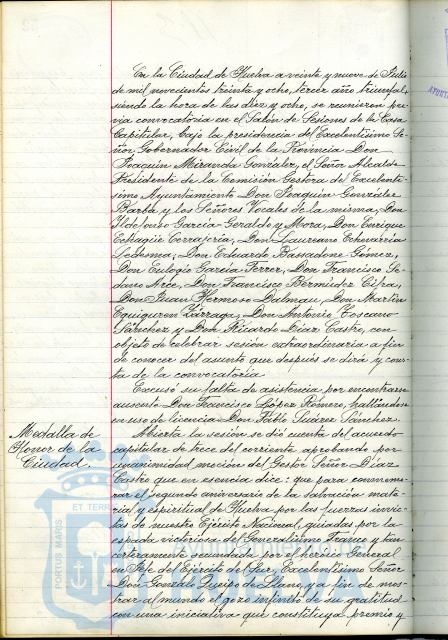 En la Ciudad de Huelva a veinte y nueve de Julio
de mil novecientos treinta y ocho, tercer año triunfal,
siendo la hora de las diez y ocho, se reunieron pre-
via convocatoria en el Salón de Sesiones de la Casa
Capitular, bajo la presidencia del Excelentísimo Se-
ñor Gobernador Civil de la Provincia Don
Joaquín Miranda González, el Señor Alcalde
Presidente de la Comisión Gestora del Excelentí-
simo Ayuntamiento Don Joaquín González
Barba y los Señores Vocales de la misma, Don
Ildefonso García-Geraldo y Mora, Don Enrique
Echagüe Don Laureano Echevarría
Ledesma, Don Eduardo Bassadone Gómez,
Don Eulogio García Ferrer, Don Francisco Se-
dano Arce, Don Francisco Bermúdez Cifra,
Don Juan Hermoso Dalmau, Don Martín
Eguiguren Zárraga, Don Antonio Toscano
Sánchez y Don Ricardo Díaz Castro, con
objeto de celebrar sesión extraordinaria a fin
de conocer del asunto que después se dirá y cons-
ta de la convocatoria
Excusó su falta de asistencia por encontrarse
ausente Don Francisco López Romero, hallándose
en uso de licencia Don Pablo Suárez Sánchez.
Medalla de
Honor de la
Ciudad.
Abierta la sesión se dió cuenta del acuerdo
capitular de trece del corriente aprobando por
unanimidad moción del Gestor Señor Díaz
Castro que en esencia dice: que para conmemo-
rar el segundo aniversario de la salvación mate-
rial y espiritual de Huelva por las fuerzas invic-
tas de nuestro Ejército Nacional, guiadas por la
espada victoriosa del Generalísimo Franco y tan
certeramente secundada por el General
en Jefe del Ejército del Sur, Excelentísimo Señor
Don Gonzalo Queipo de Llano, y a fin de mos-
trar al mundo el gozo infinito de su gratitud
con una iniciativa que constituya premio y
ET TERR
PORTUS MARIS